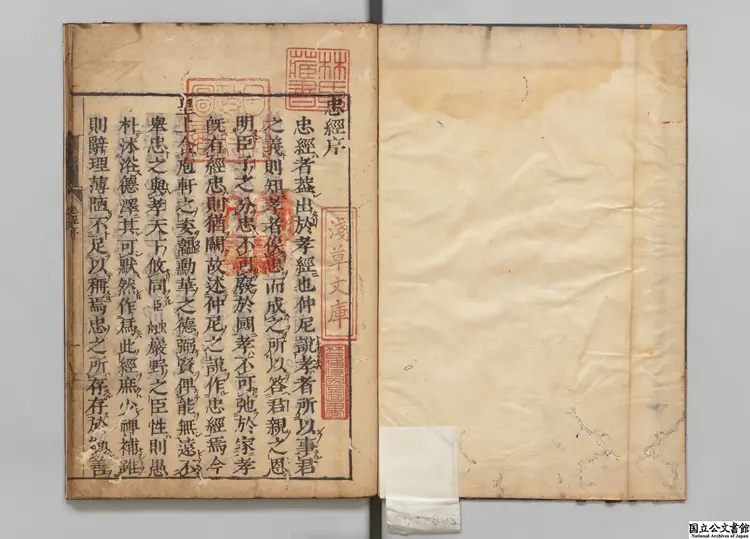 忠經序
忠經者蓋出於孝經也仲尼說孝者所以事君
之義則知孝者俟忠而成之所以答君親之恩
明臣子之分忠不可廢於國孝不可弛於家孝
既有經忠則猶闕故述仲尼之說作忠經焉今
皇上含庖軒之姿韞勛華之德弼賢俾能無遠不
舉忠之與孝天下攸同臣融巖野之臣性則愚
朴沐浴德澤其可默然作爲此經庶少裨補雖
則辭理薄陋不足以稱焉忠之所存存於勸善
林氏藏書
淺草文庫
忠經序
国立公文書館
National Archives of Japan